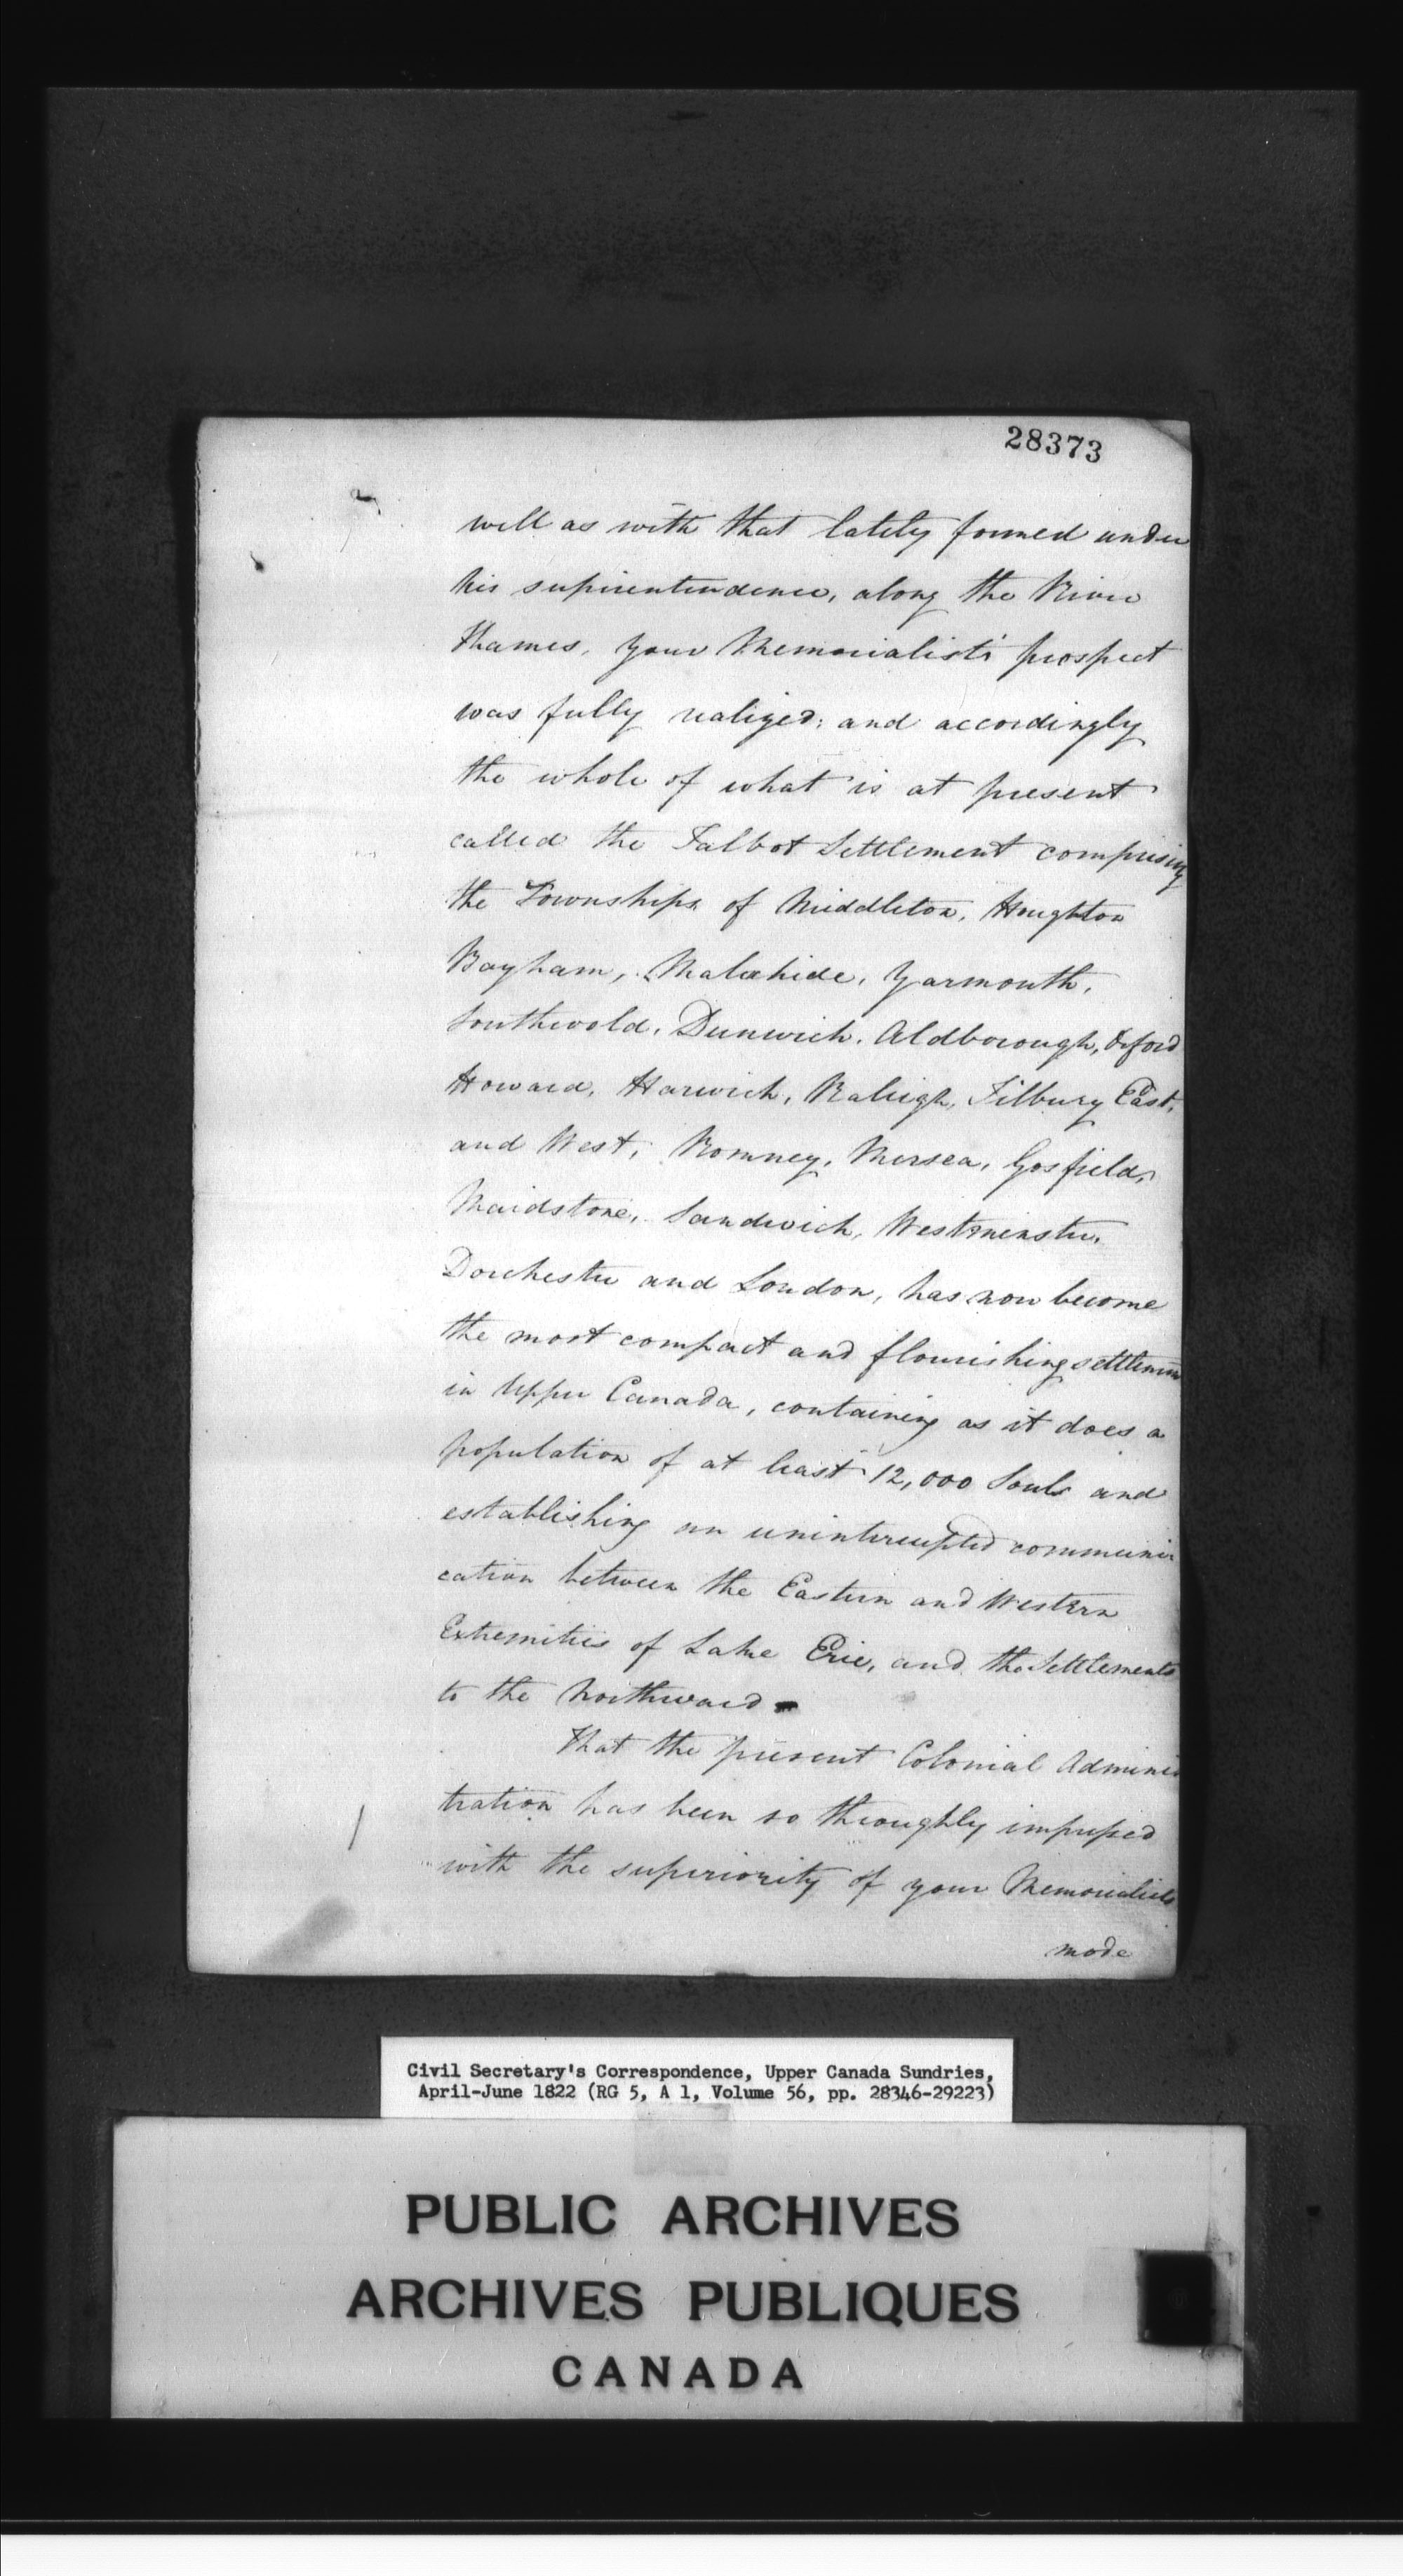 28373
well as with that lately formed under
his superintendence, along the River
Thames, your Memorialist's prospect
was fully realized; and accordingly
the whole of what is at present
called the Talbot Settlement comprising
the Townships of Middleton, Houghton
Bayham, Malahide, Yarmouth,
Southwold, Dunwich, Aldborough, Orford
Howard, Harwich, Raleigh, Tilbury East,
and West, Romney, Mersea, Gosfield,
Maidstone, Sandwich, Westminster,
Dorchester and London, has now become
the most compact and flourishing settlemen
in Upper Canada, containing as it does a
population of at least 12,000 Souls and
establishing an uninterrupted communi
cation between the Eastern and Western
Extremities of Lake Erie, and the Settlements
to the Northward
That the present Colonial Adminis
tration has been so throughly impressed
with the superiority of your Memorialists
mode
Civil Secretary's Correspondence, Upper Canada Sundries,
April-June 1822 (RG 5, A 1, Volume 56, pp. 28346-29223)
PUBLIC ARCHIVES
ARCHIVES PUBLIQUES
CANADA